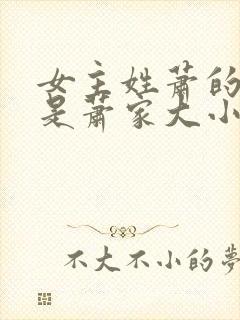 女主姓萧的
是萧家大小
不大不小的夢